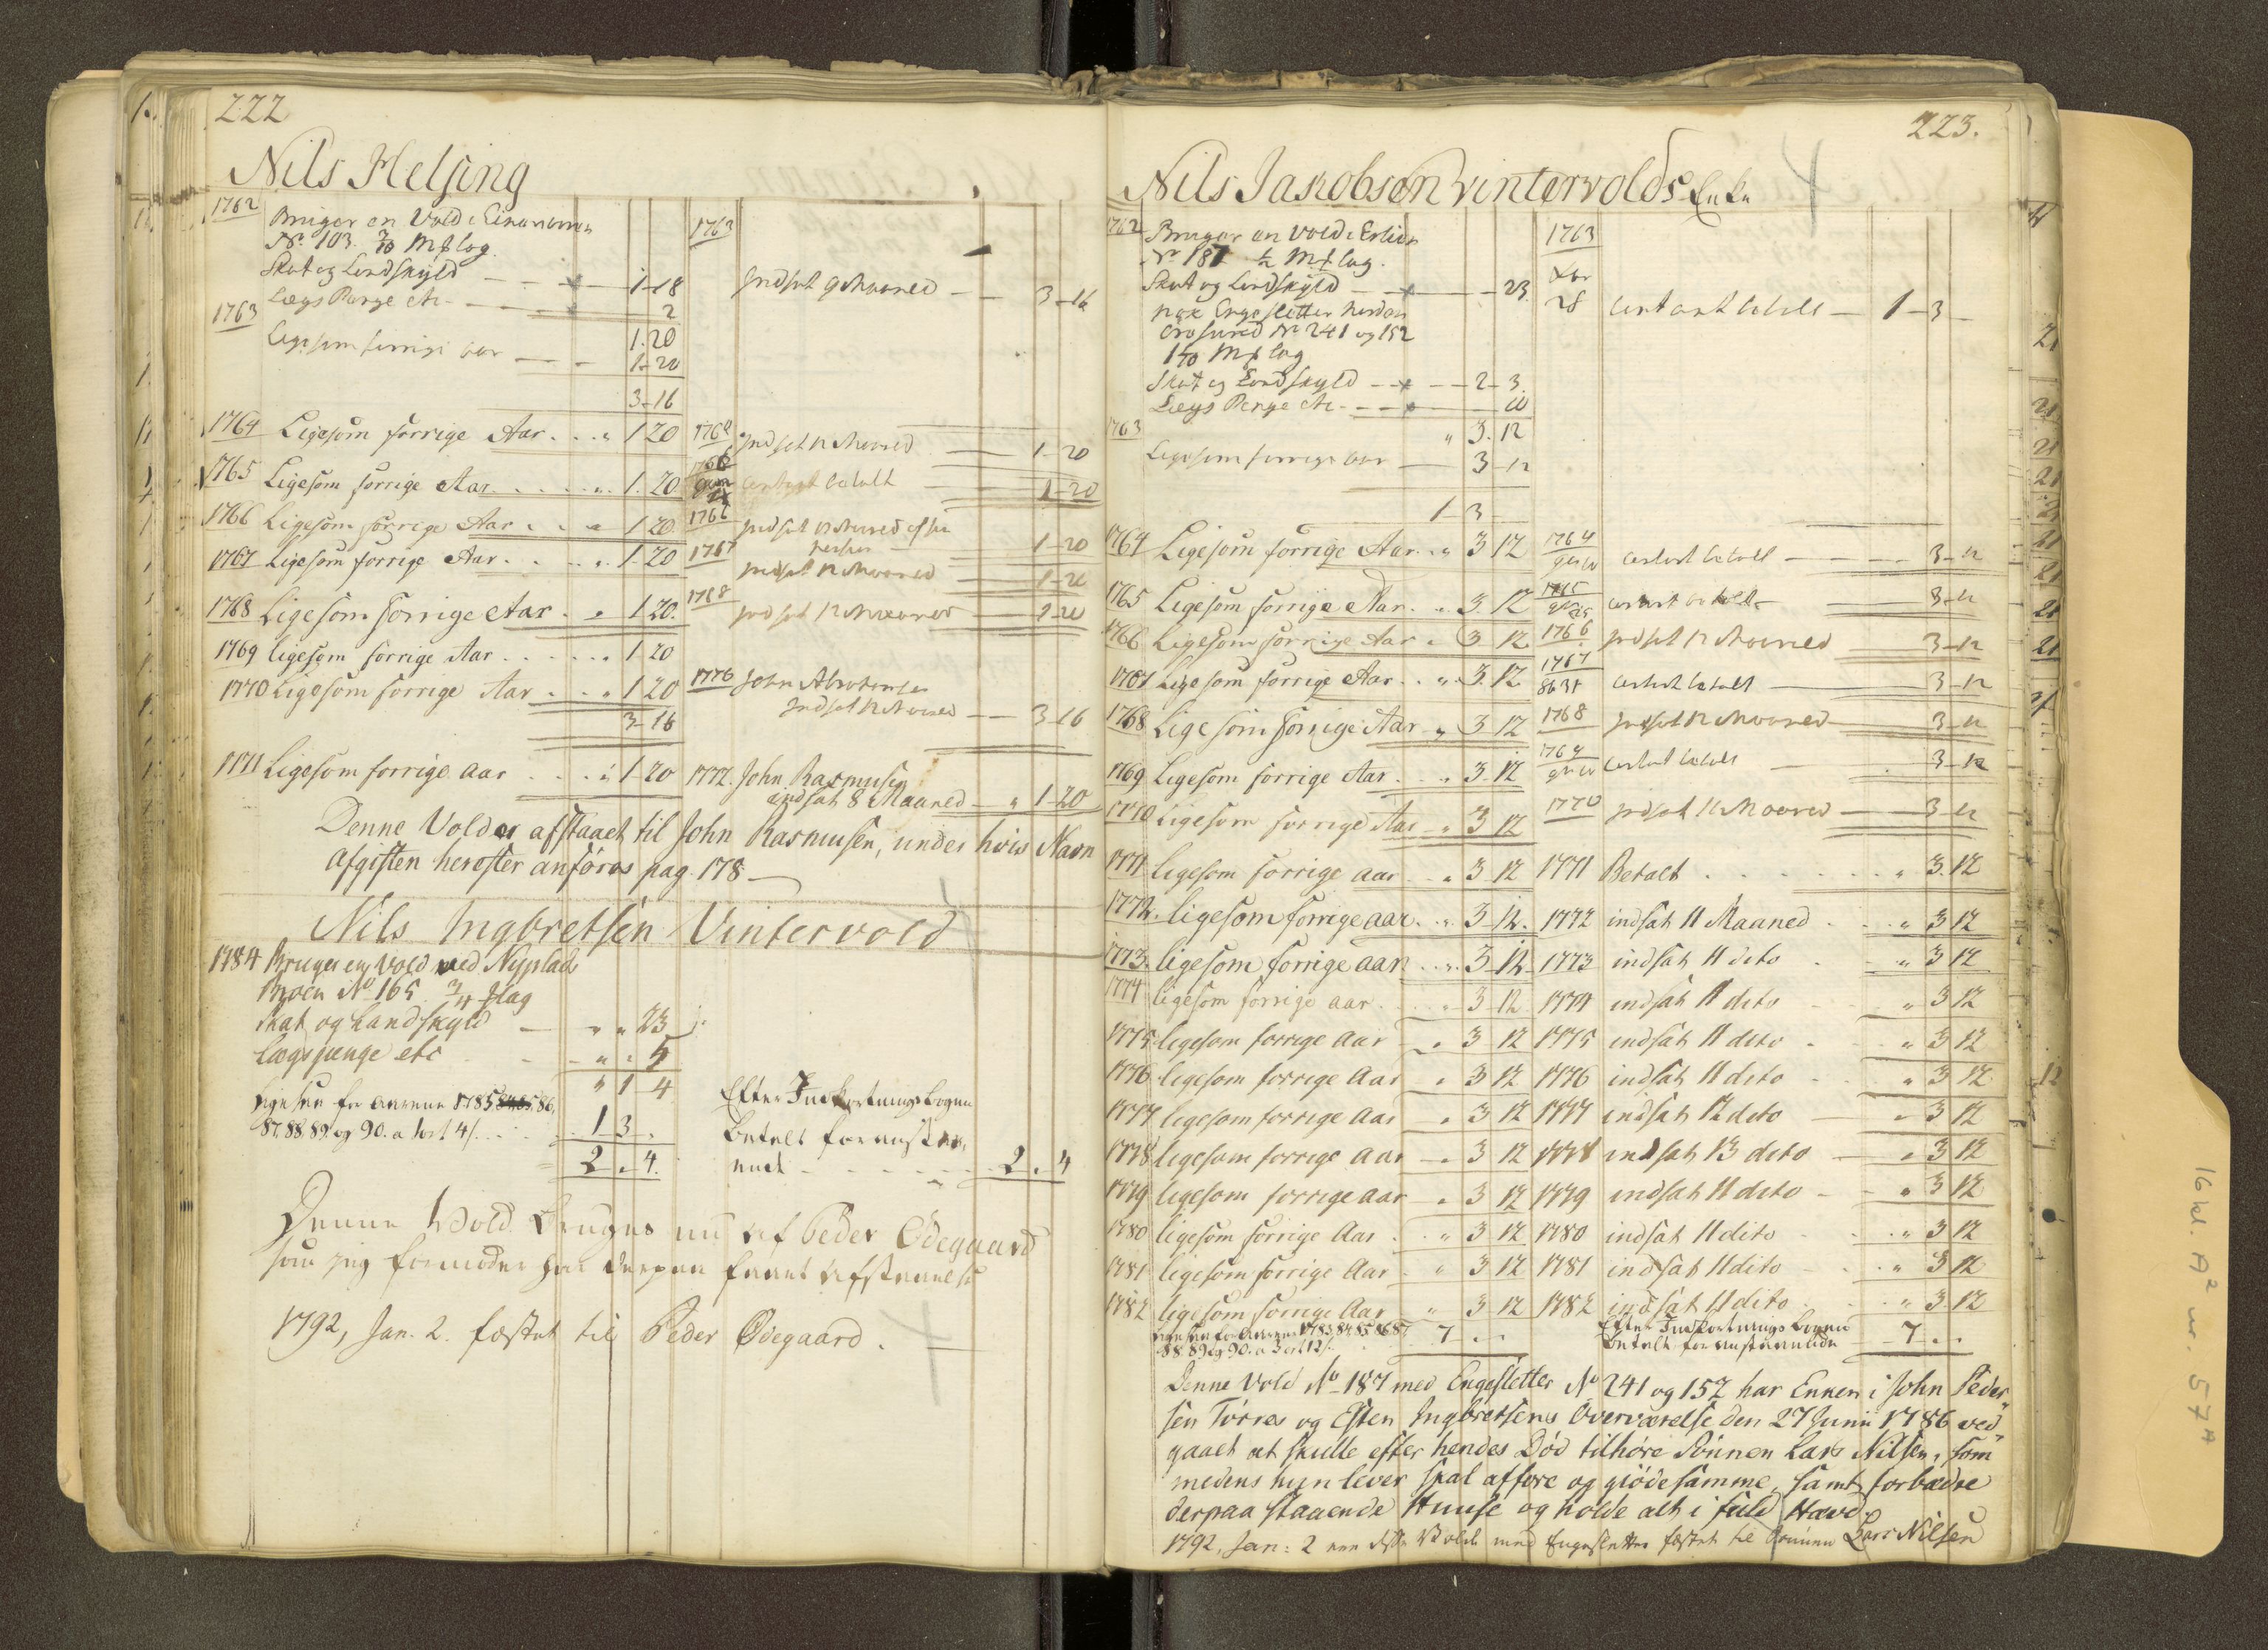 222
Nils Helsing
1762 Bruger en Vold i
No. 103. 3/10 Mf lag
Skat og Landskyld 1-18
Lægs Penge etc 2
1.20
1763 Lige som forrige aar 1-20
3-16
1763 Indsat 9 Maaned 3-16
1764 Ligesom forrige Aar 1 20
Indsat 12 Maaned 1-20
1765 Ligesom forrige Aar 1. 20
Contant betalt 1-20
1766 Ligesom forrige Aar 1 20.
1766 Indsat 12 Maaned 1-20
1767 Ligesom forrige Aar 1-20
1767 Indsat 12 Maaned 1-20
1768 Ligesom forrige Aar 1 20.
1768 Indsat 12 Maaned 1-20
1769 ligesom forrige Aar 1-20
1770 Ligesom forrige Aar 1 20
3-16
1770 John
Indsat 12 Maaned 3-16
1771 Ligesom forrige aar 1-20
1772. John Rasmusen
indsat 8 Maaned 1-20
Denne Vold er afstaaet til John Rasmusen, under hvis Navn
Afgiften herefter anføres pag. 178
Nils Ingbretsen Vintervold
1784 Bruger en Vold ved Nyplads
Broen No 165. 3/4 flag
Skat og Landskyld " " 23
Lægspenge etc " " 5
" 1 4
Ligesaa for Aarene 1785 86.
87. 88. 89. og 90. a 1 ort 4 s. 1 3 "
2 " 4.
Efter Indkortnings bogen
betalt foranstaa-
ende 2 " 4
Denne Vold bruges nu af Peder Ödegaard
som jeg formoder har derpaa faaet Afstaaelse
1792, Jan. 2. fæstet til Peder Ödegaard.
223.
Nils Jakobsøn vintervolds Enke
1762 Bruger en Vold i
No. 187 1/2 Mf lag.
Skat og Landskyld 23.
nok Enge sletter
No 241 og 152
1/10 Mf lag
Skat og Landskyld 2-3.
Lægs Penge etc 10
" 3. 12
1763 Lige som forrige aar 3-12
1 3
1763
28 Contant betalt 1-3-
1764 Ligesom forrige Aar " 3 12
1764 Contant betalt 3-12
1765 Ligesom forrige Aar " 3. 12
1765 Contant betalt 3-12
1766 Ligesom forrige Aar " 3 12
1766 Indsat 12 Maaned 3-12
1767 Ligesom forrige Aar " 3. 12
1767 Contant betalt 3-12
1768 Ligesom forrige Aar " 3 12
1768 Indsat 12 Maaned 3-12
1769 Ligesom forrige Aar " 3. 12
1769 Contant betalt 3-12
1770 Ligesom forrige Aar " 3 12
1770 Indsat 12 Maaned 3-12
1771 ligesom forrige aar " 3 12 1771 Betalt " 3. 12
1772. ligesom forrige aar " 3 12. 1772 indsat 11 Maaned " 3 12
1773. ligesom forrige aar " 3-12 1773 indsat 11 dito " 3 12
1774 ligesom forrige aar " 3-12 1774 indsat 11 dito " 3 12
1775 ligesom forrige Aar " 3 12 1775 indsat 11 dito " 3 12
1776 ligesom forrige Aar " 3 12 1776 indsat 11 dito " 3 12
1777 ligesom forrige Aar " 3 12 1777 indsat 12 dito " 3 12
1778 ligesom forrige Aar " 3 12 1778 indsat 13 dito " 3 12
1779 ligesom forrige aar " 3 12 1779 indsat 11 dito " 3 12
1780 ligesom forrige Aar " 3 12 1780 indsat 11 dito " 3 12
1781 ligesom forrige Aar " 3 12 1781 indsat 11 dito " 3 12
1782 ligesom forrige Aar " 3 12 1782 indsat 11 dito " 3 12
Ligesaa for Aarene 1783. 84. 85. 86. 87
88. 89. og 90. a 3 ort 12 s. 7 " "
Efter Indkortnings bogen
betalt for anstaaende 7 " "
Denne Vold No 187 med Engesletter No 241 og 152 har Enken i John Peder-
sen Tørres og Esten Ingbretsens Overværelse den 27 Junii 1786 ved-
gaaet at skulle efter hendes Død tilhøre Sønnen Lars Nilsen, som
medens hun lever skal affore og giøde samme, samt forbedre
derpaa staaende Huuse og holde alt i fuld Hævd
1792, Jan: 2 med Engesletter fæstet til Sönnen Lars Nilsen
16 kl. A² nr. 57ᴬ